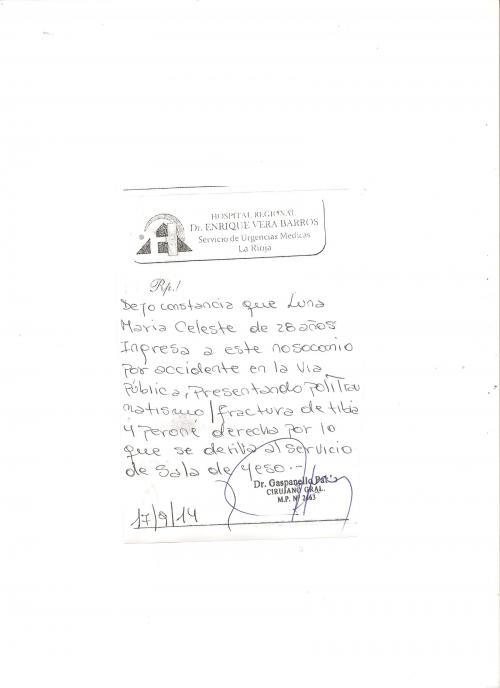 HOSPITAL REGIONAL
Dr. ENRIQUE VERA BARROS
Servicio de Urgencias Medicas
La Rioja
Rp./
Dejo constancia que Luna
Maria Celeste de 28 años
Ingresa a este nosocomio
por accidente en la via
Pública, Presentando politrau
matismo/fractura de tibia
y perone derecha por lo
que se deriva al servicio
de Sala de yeso.-
Dr. Gaspanello
CIRUJANO GRAL.
M.P. Nº
17/9/14